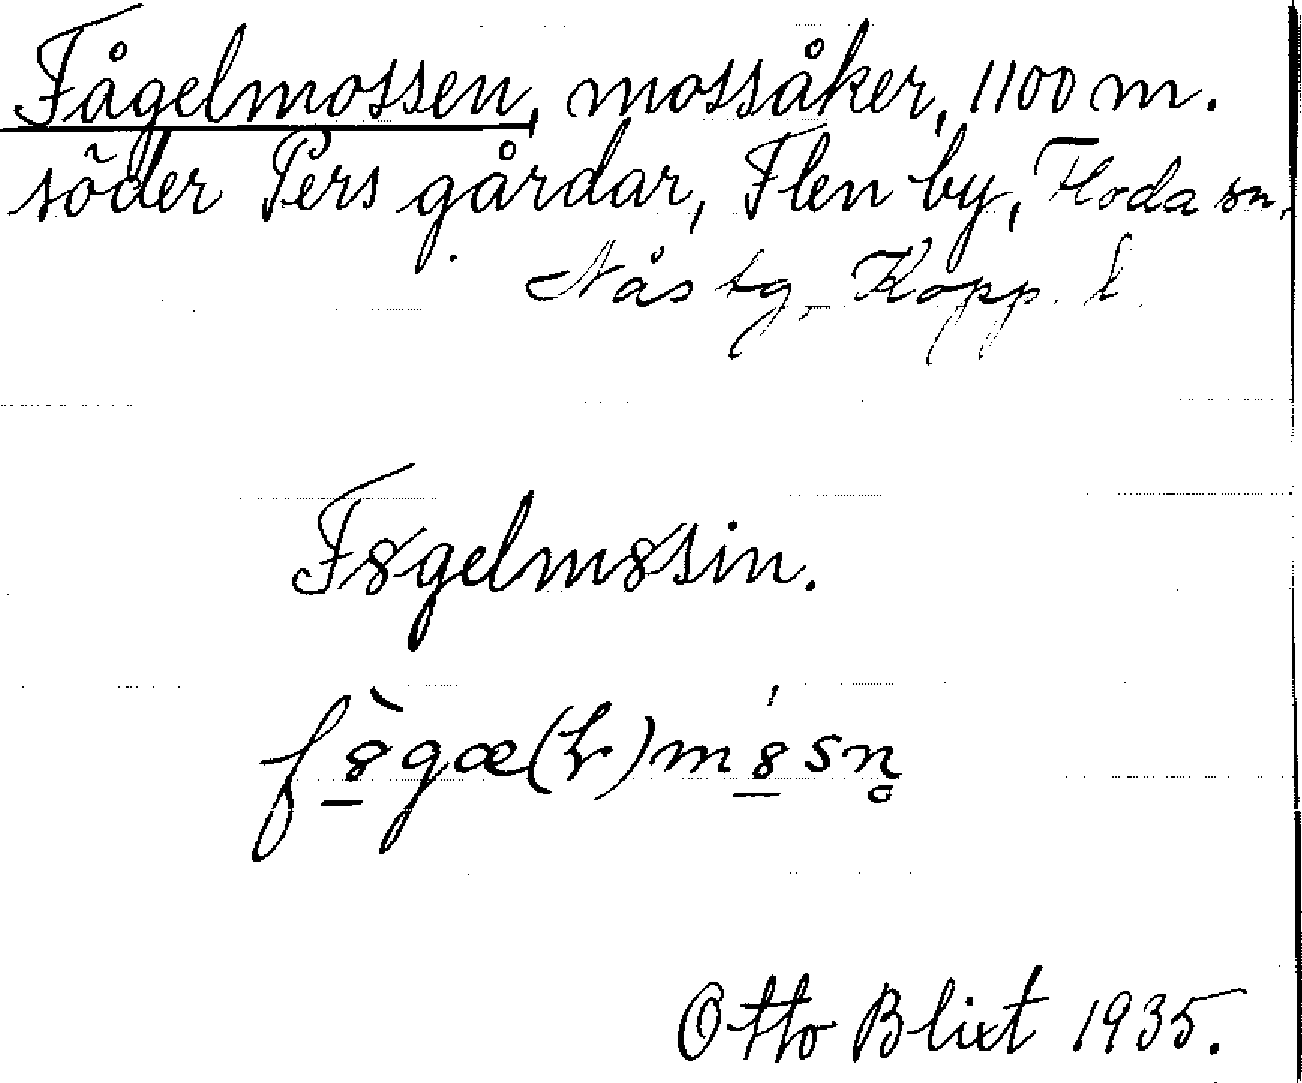 Fågelmossen, mossåker, 1100 m.
söder Pers gårdar, Flen by, Floda sn,
Nås tg, Kopp. l.
F8gelm8sin.
f8̠̀gæ(ɽ)m8̠́sn̥
Otto Blixt 1935.